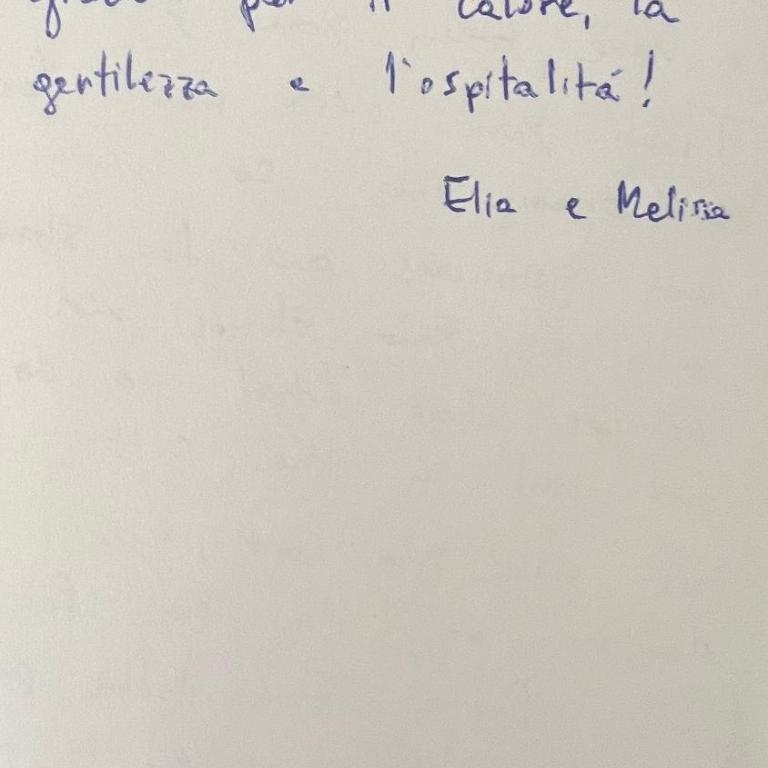 per il calore, la
gentilezza e l'ospitalitá!
Elia e Melissa